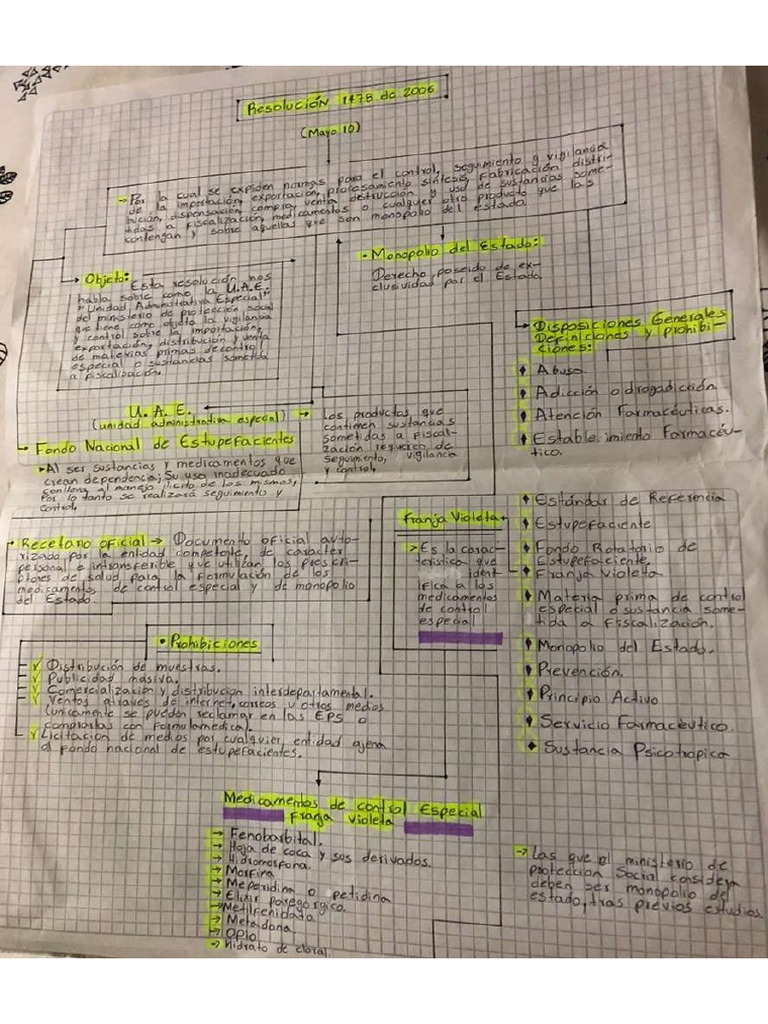 Resolución 1478 de 2006
(Mayo 10)
→ Por la cual se expiden normas para el control, seguimiento y vigilancia
de la importación, exportación, procesamiento síntesis, fabricación distri-
bución, dispensación, compra, venta destrucción y uso de sustancias some-
tidas a fiscalización, medicamentos o cualquier otro producto que las
contengan y sobre aquellas que son monopolio del estado
→ Objeto:
Esta resolución nos
habla sobre como la U.A.E.
"Unidad Administrativa Especial"
del ministerio de protección social
que tiene como objeto la vigilancia
y control sobre la importación,
exportación, distribución y venta
de materias primas de control
especial o sustancias sometida
a fiscalización.
• Monopolio del Estado:
Derecho poseido de ex-
clusividad por el Estado
→ Disposiciones Generales
Definiciones y prohibi-
ciones:
♦ Abuso.
♦ Adicción o drogadicción.
♦ Atención Farmacéuticas.
♦ Establecimiento Farmacéu-
tico.
♦ Estándar de Referencia
♦ Estupefaciente
♦ Fondo Rotatorio de
Estupefaciente.
♦ Franja Violeta
♦ Materia prima de control
especial o sustancia some-
tida a Fiscalización.
♦ Monopolio del Estado.
♦ Prevención.
♦ Principio Activo
♦ Servicio Farmacéutico.
♦ Sustancia Psicotrópica
U. A. E.
(unidad administrativa especial)
Fondo Nacional de Estupefacientes
➤ Al ser sustancias y medicamentos que
crean dependencia; Su uso inadecuado
conlleva al manejo ilicito de los mismos,
Por lo tanto se realizará seguimiento y
control.
→ Los productos que
contienen sustancias
sometidas a fiscal-
ización requerco de
seguimiento, vigilancia
y control.
• Recetario oficial → Documento oficial auto-
rizado por la entidad competente, de caracter
personal e intransferible que utilizan los prescri-
ptores de salud para la formulación de los
medicamentos de control especial y de monopolio
del Estado.
Franja Violeta
➤ Es la carac-
teristica que
ident
ifica a los
medicamentos
de control
especial
• Prohibiciones
✓ Distribución de muestras.
✓ Publicidad masiva.
✓ Comercialización y distribucion interdepartamental.
✓ Ventas através de internet, correos u otros medios
(unicamente se pueden reclamar en las EPS o
comprarlas con formula medica).
✓ Licitacion de medios por cualquier entidad ajena
al fondo nacional de estupefacientes.
Medicamentos de control Especial
Franja Violeta
→ Fenobarbital.
→ Hoja de coca y sus derivados.
→ Hidromorfona.
→ Morfina
→ Meperidina o petidina
→ Elixir paregorgico.
→ Metilfenidato
→ Metadona
→ Opio
→ Hidrato de cloral.
→ Las que el ministerio de
protección Social considera
deben ser monopolio del
estado, tras previos estudios